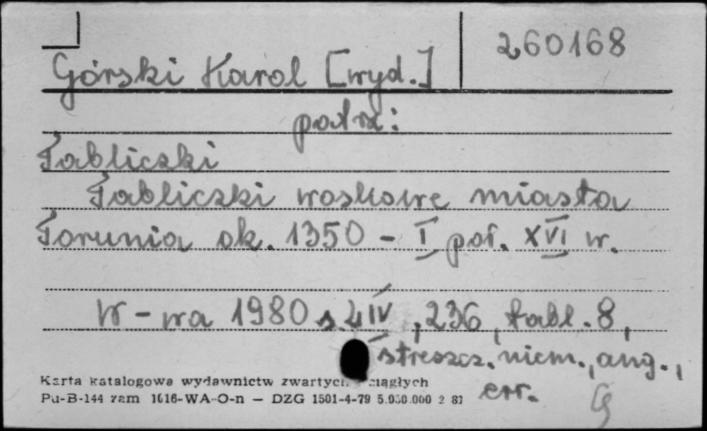 260168
Górski Karol [wyd.]
patrz:
Tabliczki
Tabliczki woskowe miasta
Torunia ok. 1350 - I poł. XVI w.
W-wa 1980 s. 4 IV, 236, tabl. 8,
streszcz. niem., ang.,
err.
G
Karta katalogowa wydawnictw zwartych ciągłych
Pu-B-144 zam 1616-WA-O-n — DZG 1501-4-79 5.000.000 2 81